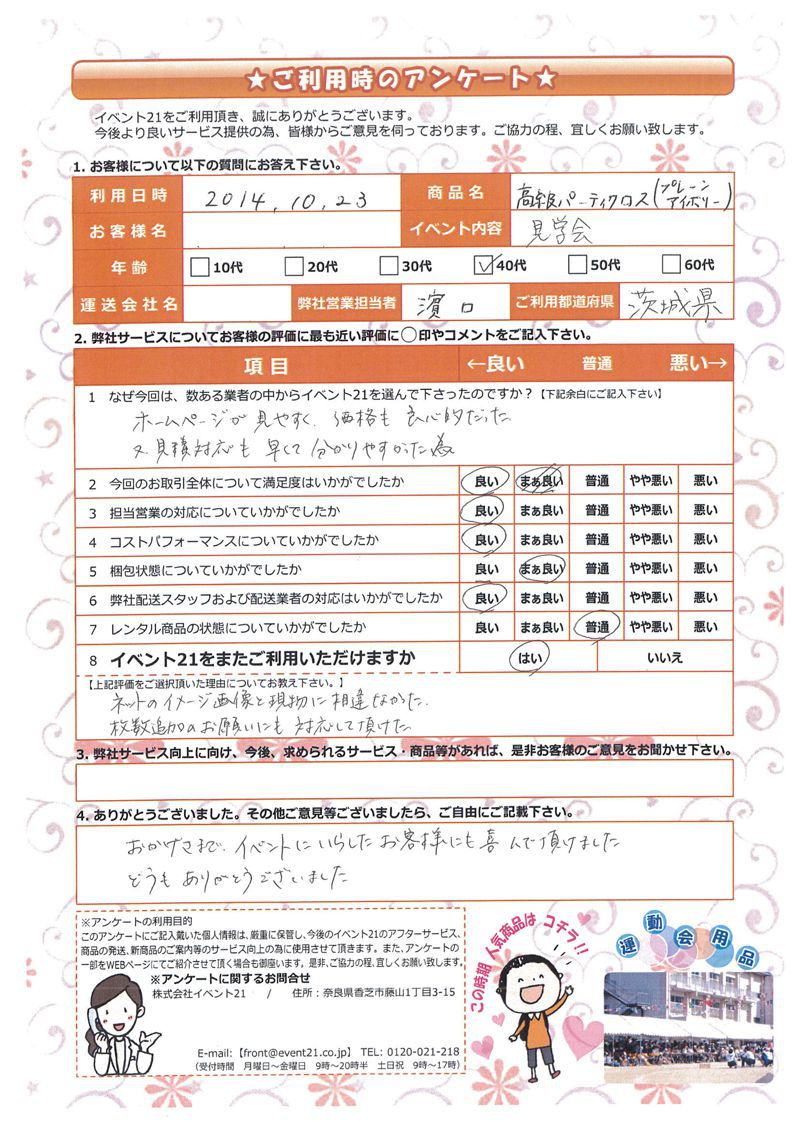 ★ご利用時のアンケート★
イベント21をご利用頂き、誠にありがとうございます。
今後より良いサービス提供の為、皆様からご意見を伺っております。ご協力の程、宜しくお願い致します。
1. お客様について以下の質問にお答え下さい。
利用日時 2014.10.23 商品名 高級パーティクロス(プレーンアイボリー)
お客様名 イベント内容 見学会
年齢 10代 20代 30代 ✓40代 50代 60代
運送会社名 弊社営業担当者 濱口 ご利用都道府県 茨城県
2. 弊社サービスについてお客様の評価に最も近い評価に○印やコメントをご記入下さい。
項目 ←良い 普通 悪い→
1 なぜ今回は、数ある業者の中からイベント21を選んで下さったのですか?【下記余白にご記入下さい】
ホームページが見やすく、価格も良心的だった
又、見積対応も早くて分かりやすかった為
2 今回のお取引全体について満足度はいかがでしたか 良い まぁ良い 普通 やや悪い 悪い
3 担当営業の対応についていかがでしたか 良い まぁ良い 普通 やや悪い 悪い
4 コストパフォーマンスについていかがでしたか 良い まぁ良い 普通 やや悪い 悪い
5 梱包状態についていかがでしたか 良い まぁ良い 普通 やや悪い 悪い
6 弊社配送スタッフおよび配送業者の対応はいかがでしたか 良い まぁ良い 普通 やや悪い 悪い
7 レンタル商品の状態についていかがでしたか 良い まぁ良い 普通 やや悪い 悪い
8 イベント21をまたご利用いただけますか はい いいえ
【上記評価をご選択頂いた理由についてお教え下さい。】
ネットのイメージ画像と現物に相違なかった.
枚数追加のお願いにも対応して頂けた
3. 弊社サービス向上に向け、今後、求められるサービス・商品等があれば、是非お客様のご意見をお聞かせ下さい。
4. ありがとうございました。その他ご意見等ございましたら、ご自由にご記載下さい。
おかげさまで、イベントにいらしたお客様にも喜んで頂けました
どうもありがとうございました
※アンケートの利用目的
このアンケートにご記入戴いた個人情報は、厳重に保管し、今後のイベント21のアフターサービス、
商品の発送、新商品のご案内等のサービス向上の為に使用させて頂きます。また、アンケートの
一部をWEBページにてご紹介させて頂く場合も御座います。是非、ご協力の程、宜しくお願い致します。
※アンケートに関するお問合せ
株式会社イベント21 / 住所:奈良県香芝市藤山1丁目3-15
E-mail:【front@event21.co.jp】 TEL: 0120-021-218
(受付時間 月曜日~金曜日 9時~20時半 土日祝 9時~17時)
この時期 人気商品は コチラ!!
運動会用品